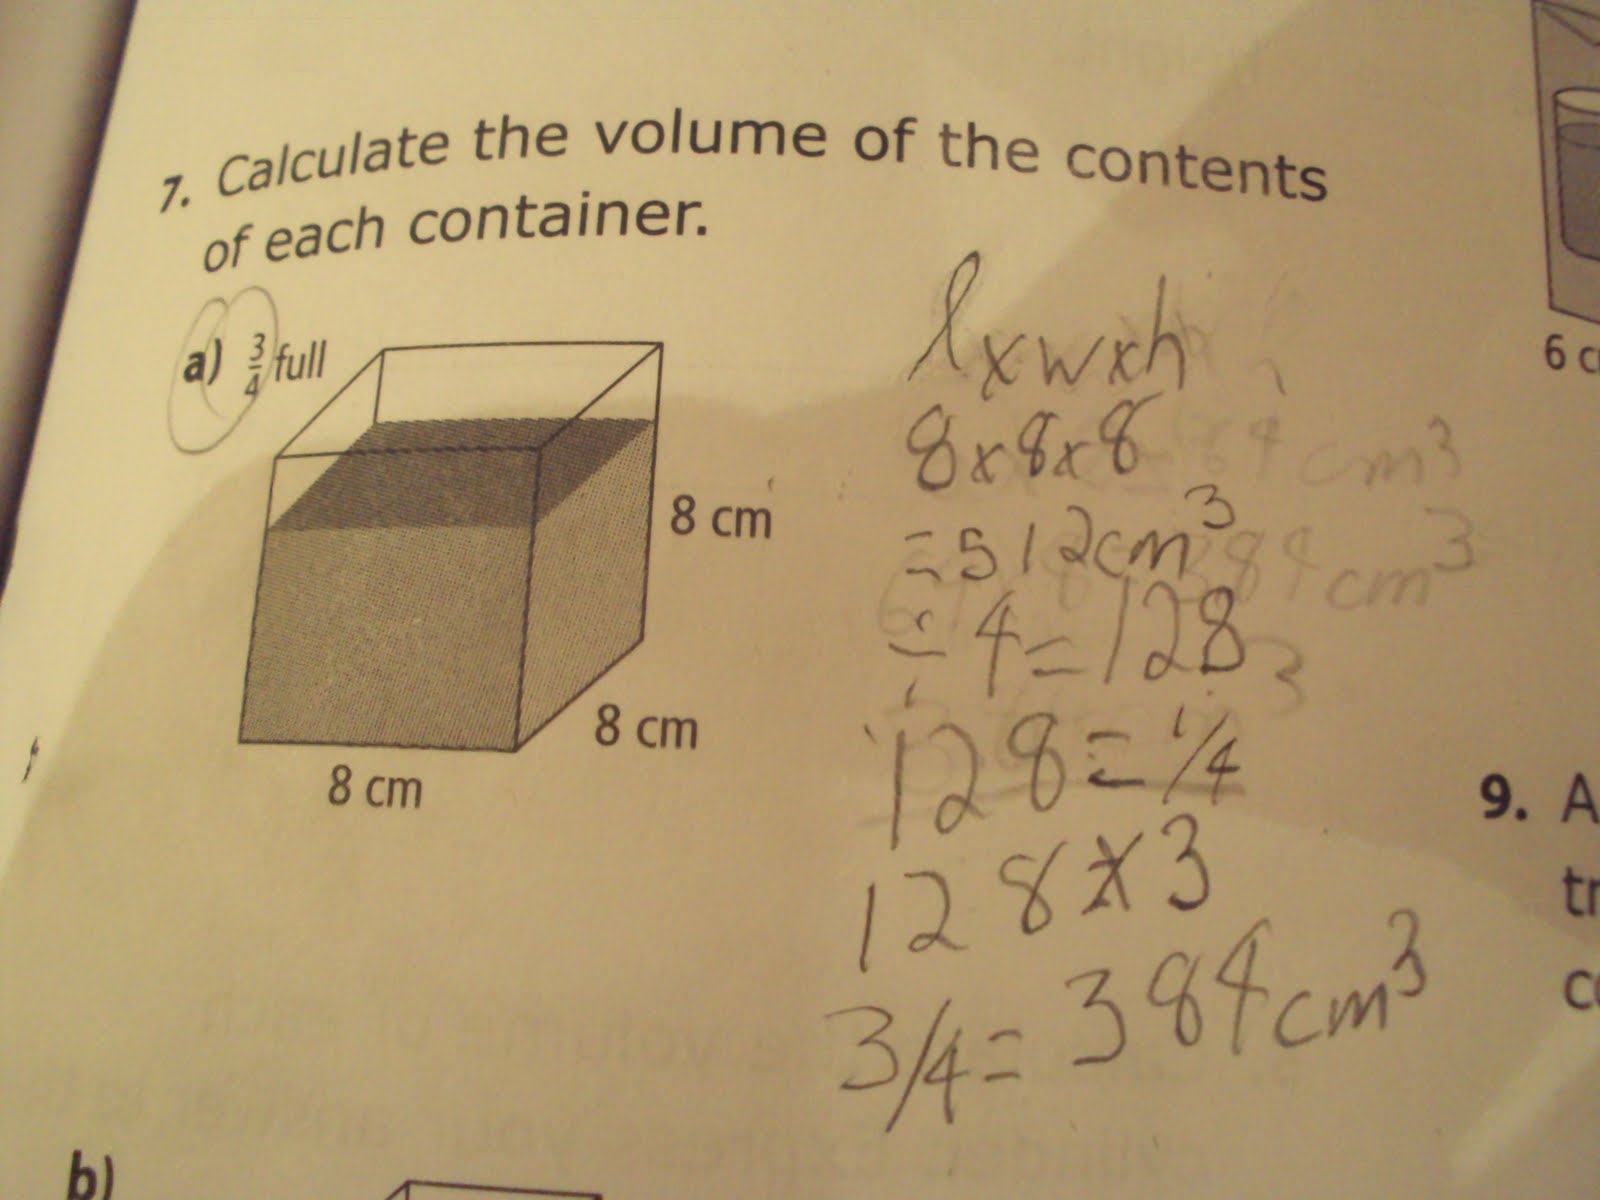 7. Calculate the volume of the contents
of each container.
a) 3/4 full
8 cm
8 cm
8 cm
l x w x h
8 x 8 x 8
= 512 cm³
÷ 4 = 128
128 = 1/4
128 x 3
3/4 = 384 cm³
6 c
9. A
tr
co
b)